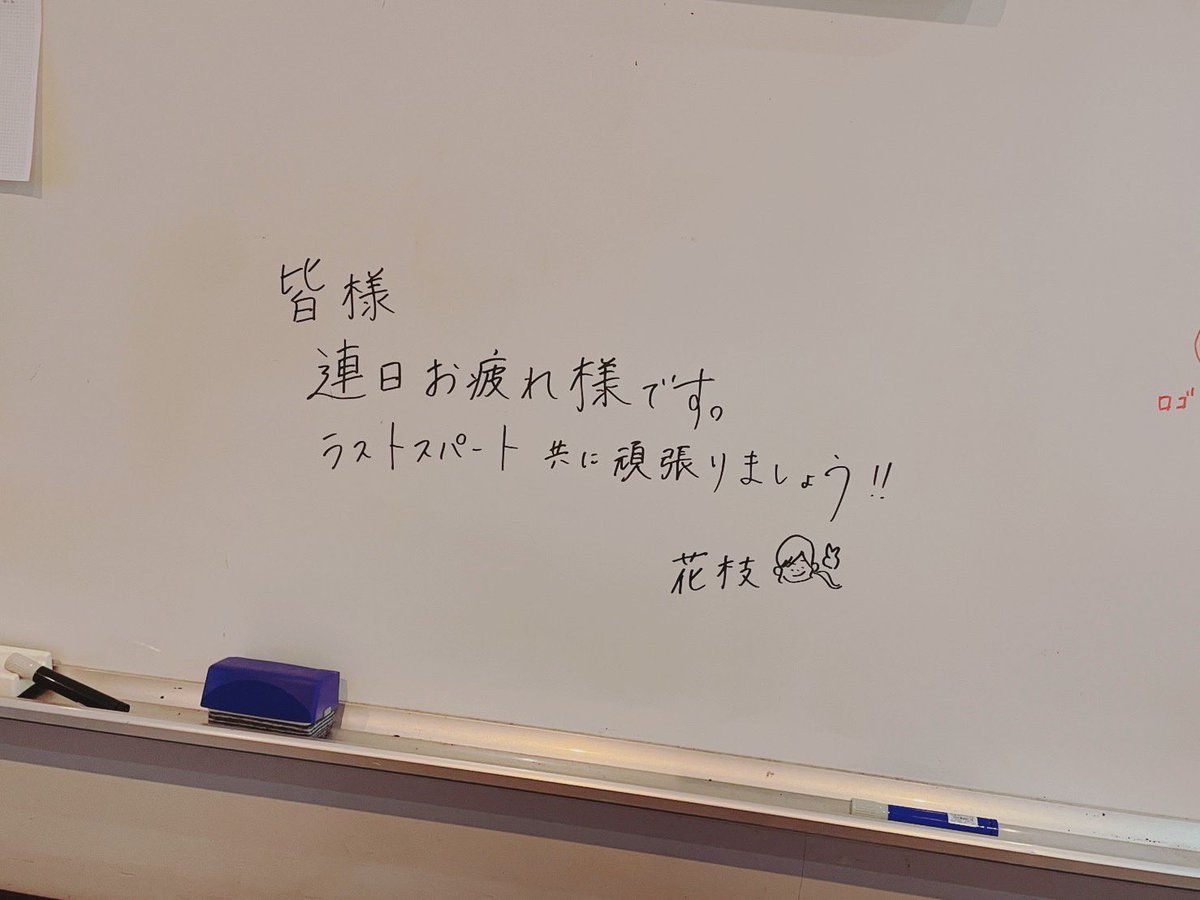 皆様
連日お疲れ様です。
ラストスパート 共に頑張りましょう!!
花枝
ロゴ